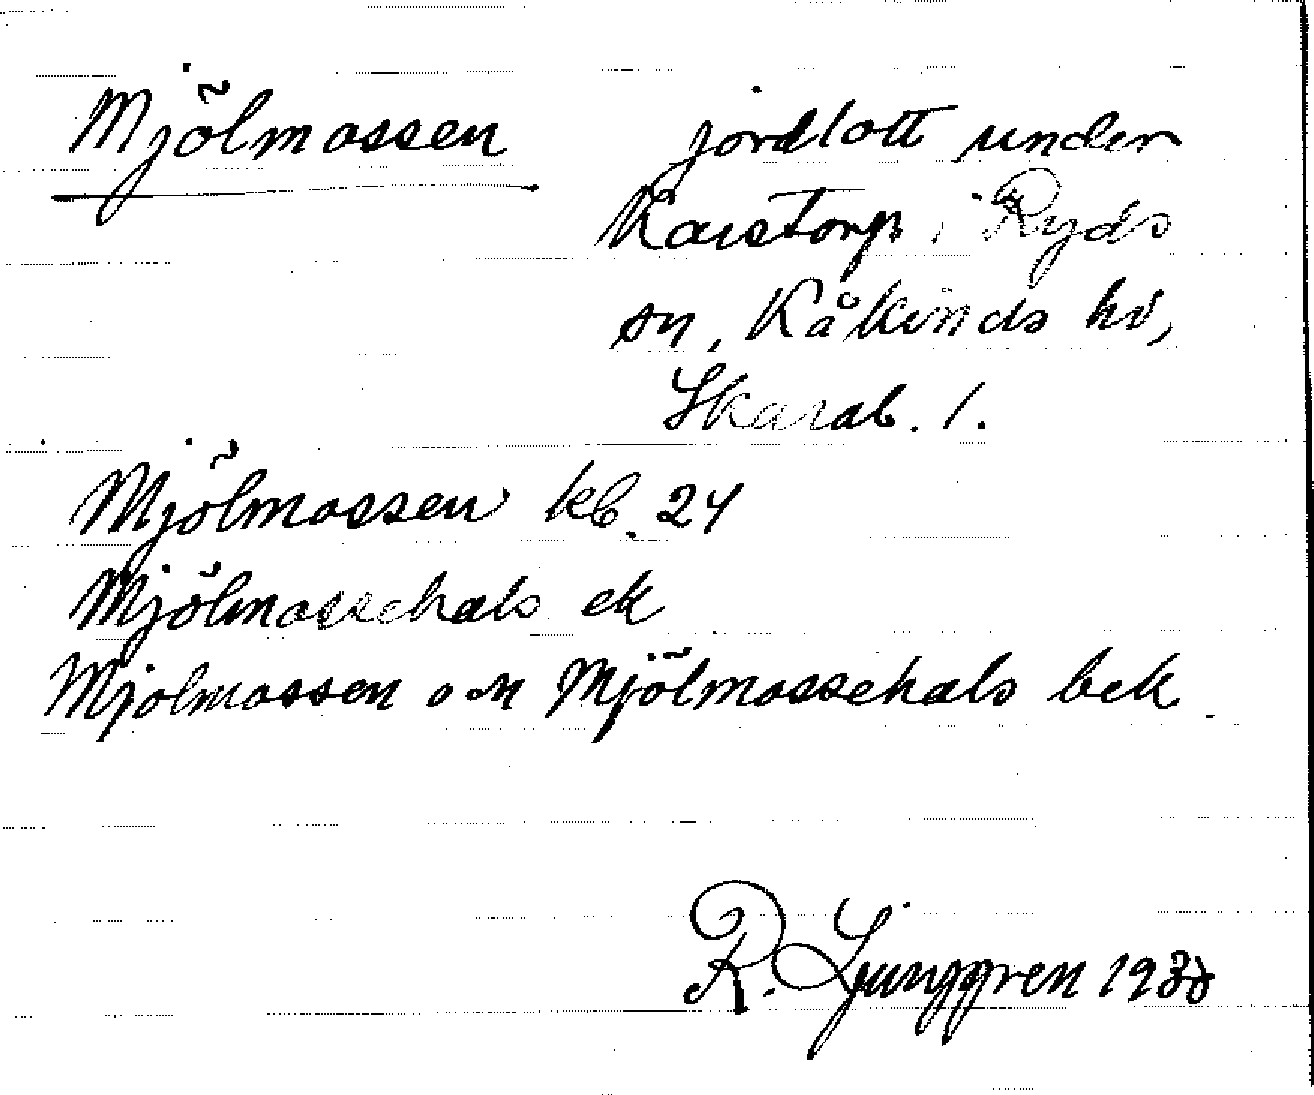 Mjölmossen jordlott under
Karstorp i Ryds
sn, Kåkinds hd,
Skarab. l.
Mjölmossen kb. 24
Mjölmossehals ek
Mjölmossen och Mjölmossehals bek
R. Ljunggren